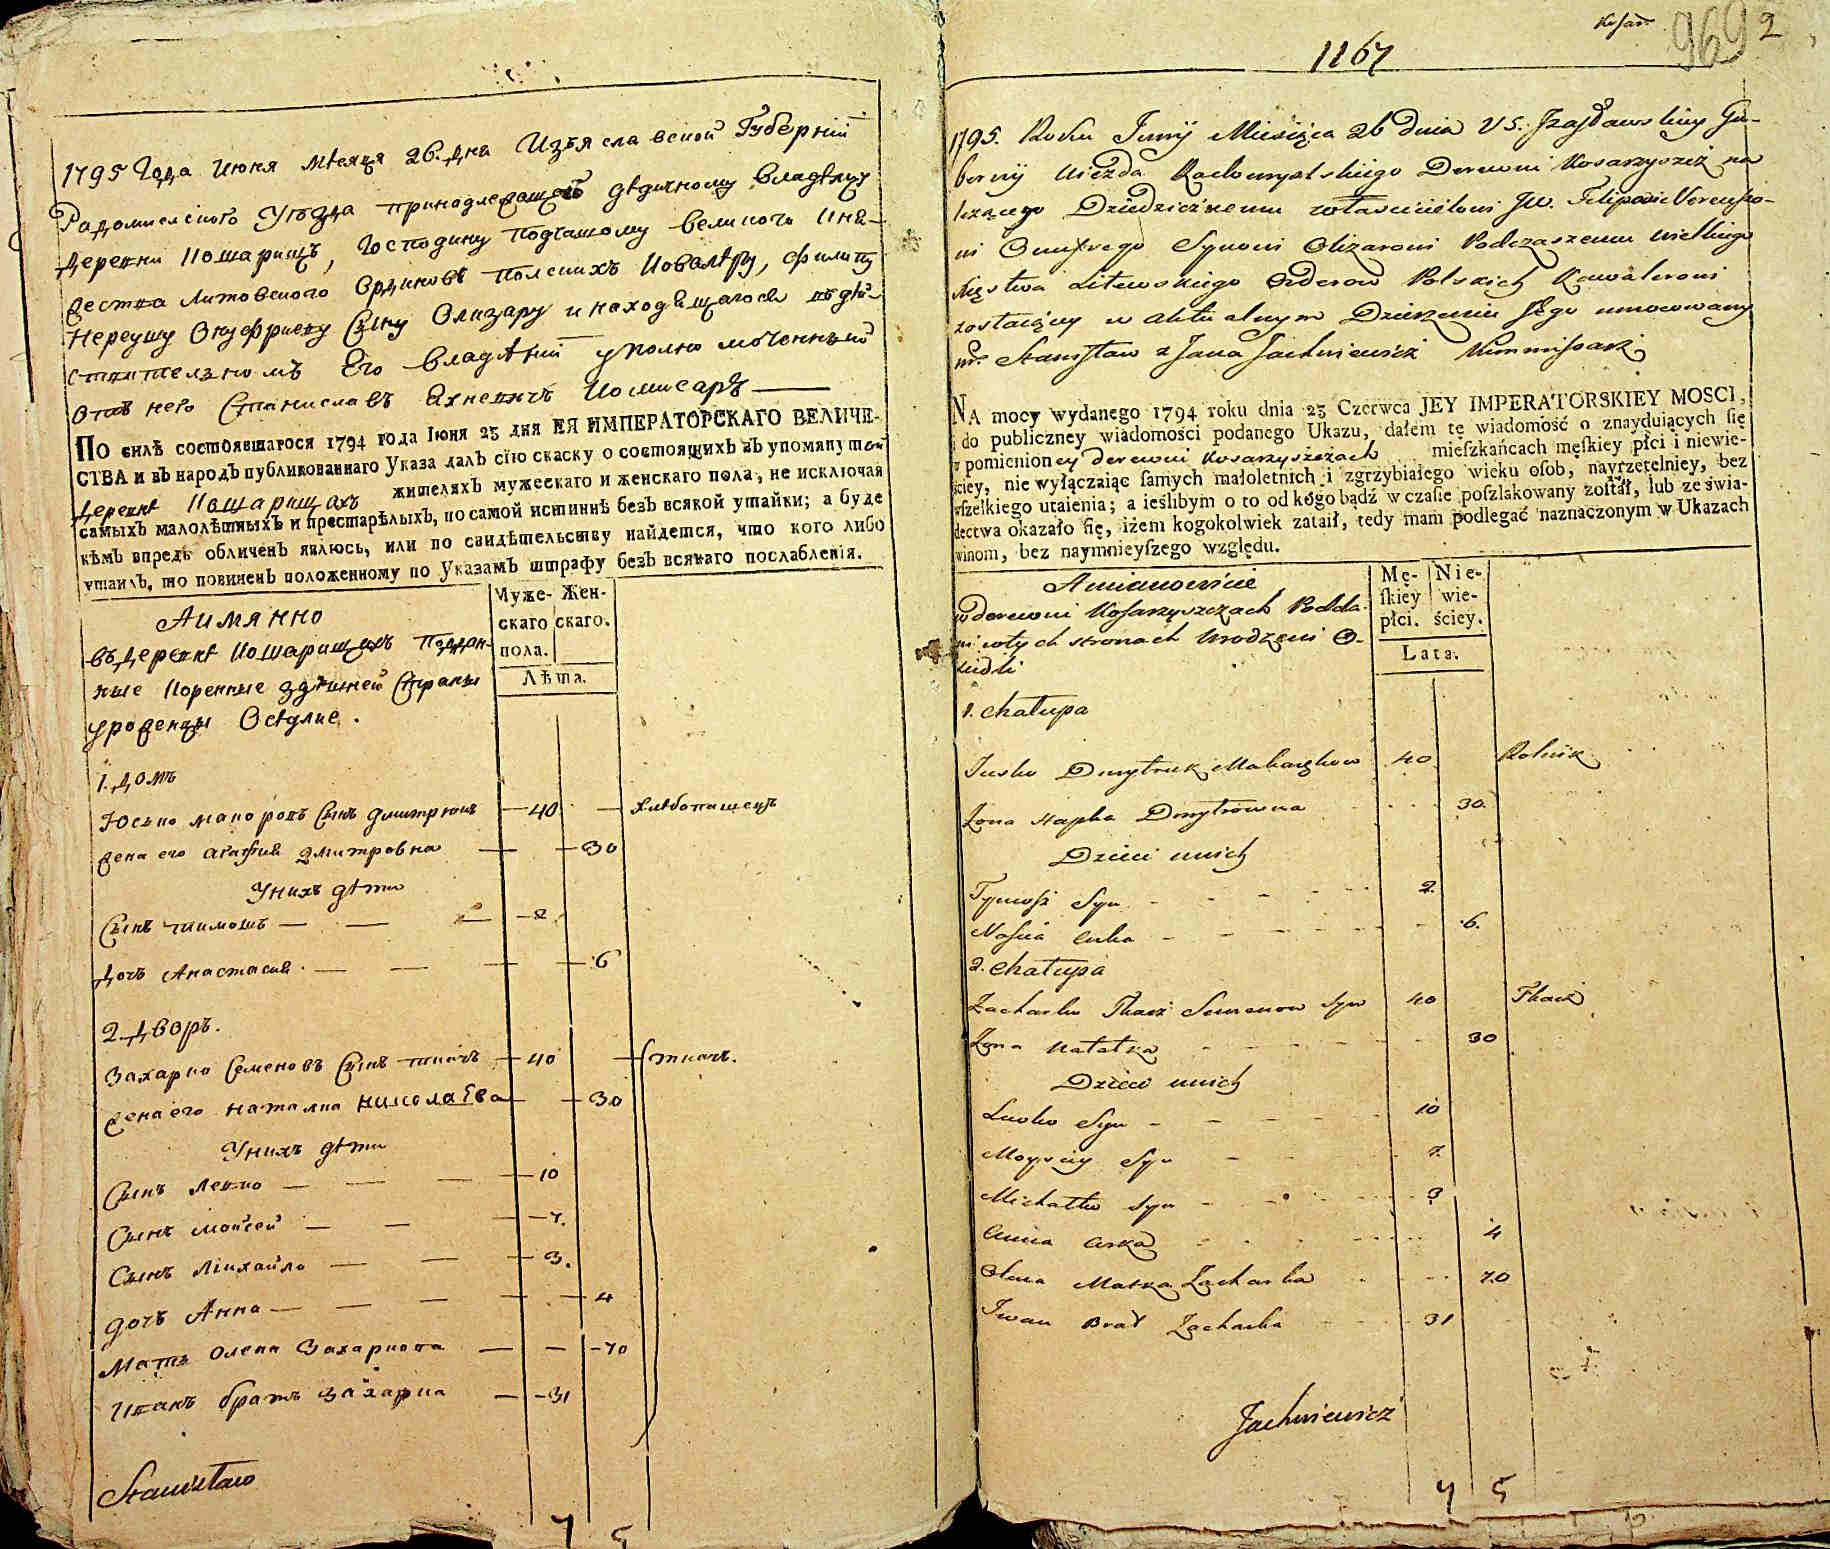 1795 Года Июня мѣсяца 26. дня Изъяславской Губерніи
Радомиского Уѣзда принадлежащей дѣдичному владѣлцу
Деревни Кошарищъ, Господину Подчашому великого Кня-
жества Литовского Ординовъ полскихъ Ковалѣру, Филипу
Нереушу Онуфриеву Сыну Олизару и находящагося въ дѣй-
ствителномъ Его владѣніи уполномоченный
отъ него Станиславъ Яхневичъ Комисаръ
ПО силѣ состоявшагося 1794 года Іюня 23 дня ЕЯ ИМПЕРАТОРСКАГО ВЕЛИЧЕ-
СТВА и въ народъ публикованнаго Указа далъ сїю скаску о состоящихъ въ упомянутой
деревнѣ Кошарищахъ жителяхъ мужескаго и женскаго пола, не исключая
самыхъ малолѣтныхъ и престарѣлыхъ, по самой истиннѣ безъ всякой утайки; а буде
кѣмъ впредь обличенъ явлюсь, или по свидѣтельству найдется, что кого либо
утаилъ, то повиненъ положенному по Указамъ штрафу безъ всякаго послабленія.
Аимянно
Муже- Жен-
скаго скаго.
пола.
Лѣта.
въ деревнѣ Кошарищахъ поддан-
ные Коренные здѣшней Страны
уроженцы Осѣдлие.
1. домъ
Юсько макоровъ Сынъ дмитрюкъ 40 хлѣбопашецъ
жена его агафия дмитровна 30
Унихъ дѣти
Сынъ тимошъ 2
дочь Анастасия 6
2. дворъ.
Захарко Семеновъ Сынъ ткачъ 40 ткачъ.
жена его наталка николаева 30
Унихъ дѣти
Сынъ левко 10
Сынъ мойсей 7.
Сынъ михайло 3.
дочь Анна 4
мать олена Захаркова 70
иванъ братъ захарка 31
Stanisław
7 5
Kosar.
969 2
1167
1795. Roku Junij Miesiąca 26 dnia VS. Izasławskiey Gu-
bernij Uiezda Radomyslskiego Derewni Kosarzyszcz na
leżącego Dziedzicznemu właścicielowi JW. Filipowi Nereuszo-
wi Onufrego Synowi Olizarowi Podczaszemu Wielkiego
Xięstwa Litewskiego Orderow Polskich Kawalerowi
zostaiącey w aktualnym Dzierzeniu Jego umocowany
Stanisław z Jana Jachniewicz Kommissarz
NA mocy wydanego 1794 roku dnia 23 Czerwca JEY IMPERATORSKIEY MOSCI,
i do publiczney wiadomości podanego Ukazu, dałem tę wiadomość o znayduiących się
w pomienioney derewni Kosarzyszczach mieſzkańcach męſkiey płci i niewie-
ściey, nie wyłączaiąc ſamych małoletnich i zgrzybiałego wieku oſob, nayrzetelniey, bez
wſzelkiego utaienia; a ieślibym o to od kogo bądź w czaſie poſzlakowany zoſtał, lub ze świa-
dectwa okazało ſię, iżem kogokolwiek zataił, tedy mam podlegać naznaczonym w Ukazach
winom, bez naymnieyſzego względu.
Amianowicie
Mę- Nie-
ſkiey wie-
płci. ściey.
Lata.
w derewni Kosarzyszczach Podda-
ni wtych stronach Urodzeni O-
siedli
1. chałupa
Jusko Dmytruk Makarykow 40 Rolnik
Żona Hapka Dmytrowna 30.
Dzieci unich
Tymosz Syn 2.
Nascia Curka 6.
2. chałupa
Zacharko Tkacz Semenow Syn 40 Tkacz
Żona Natałka 30
Dzieci unich
Lewko Syn 10
Moysiey Syn 7.
Michałko Syn 3
Anna Curka 4
Olena Matka Zacharka 70
Iwan Brat Zacharka 31
Jachniewicz
7 5